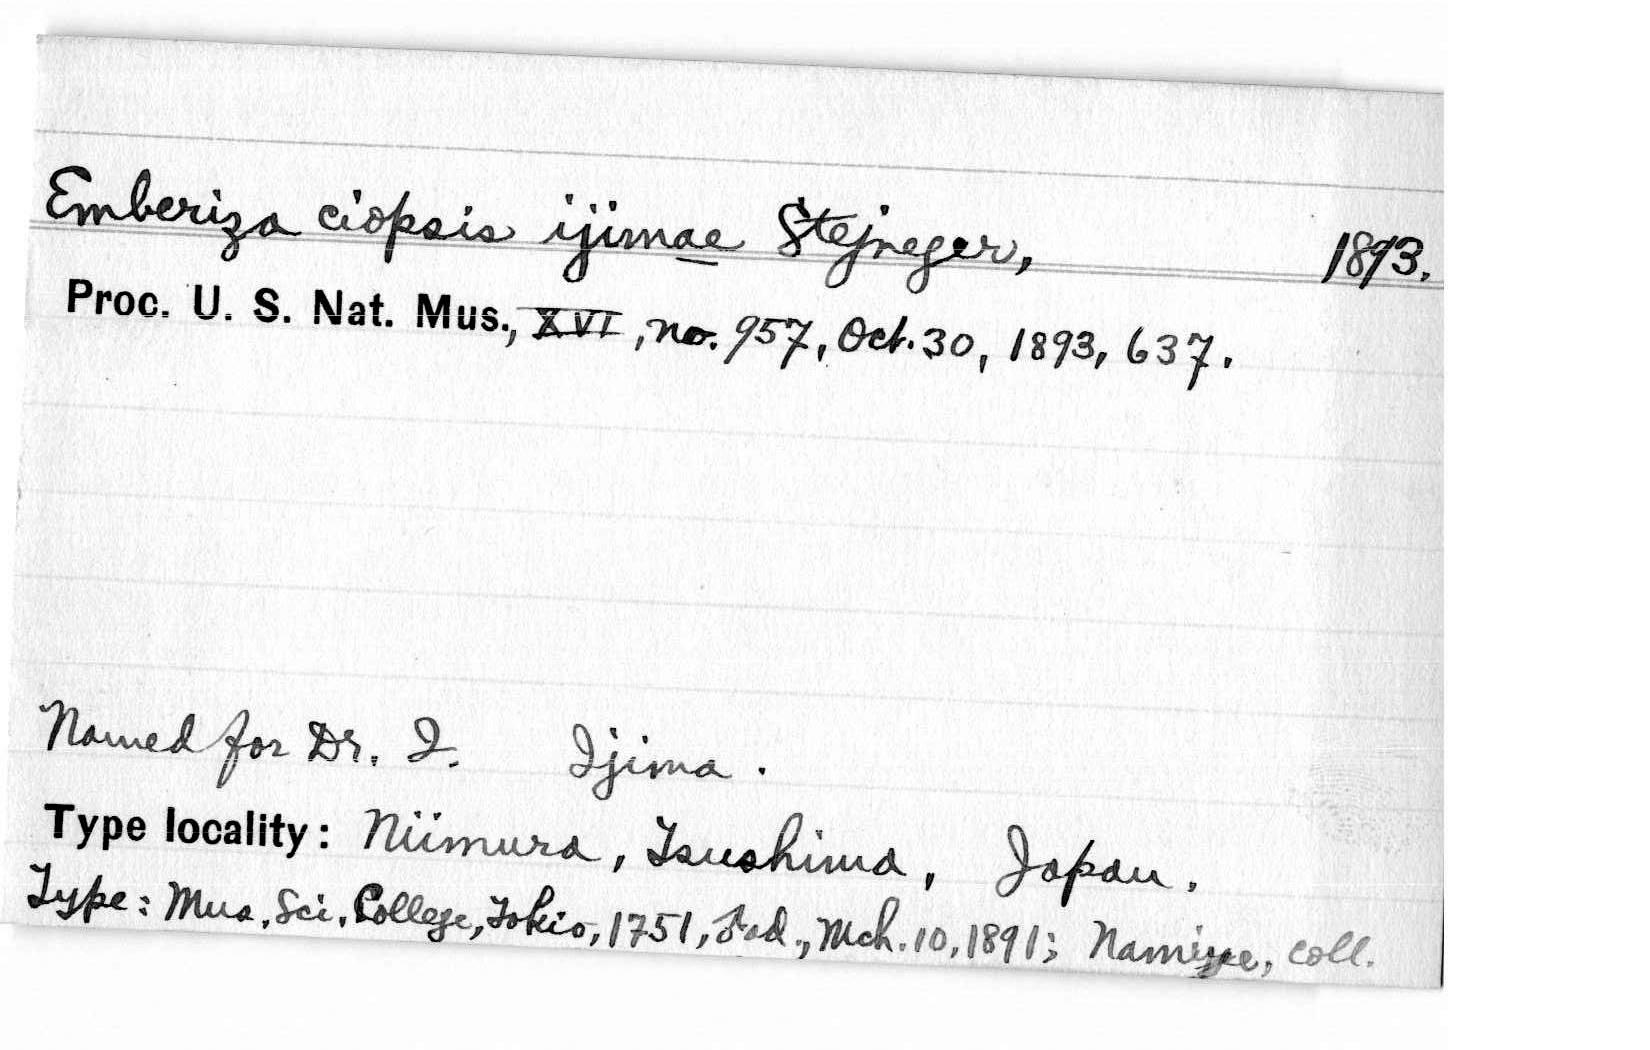 Emberiza ciopsis ijimae Stejneger, 1893.
Proc. U. S. Nat. Mus., XVI, no. 957, Oct. 30, 1893, 637.
Named for Dr. I. Ijima.
Type locality: Niimura, Tsushima, Japan.
Type: Mus. Sci. College, Tokio, 1751, ♂ ad., Mch. 10, 1891; Namiye, coll.